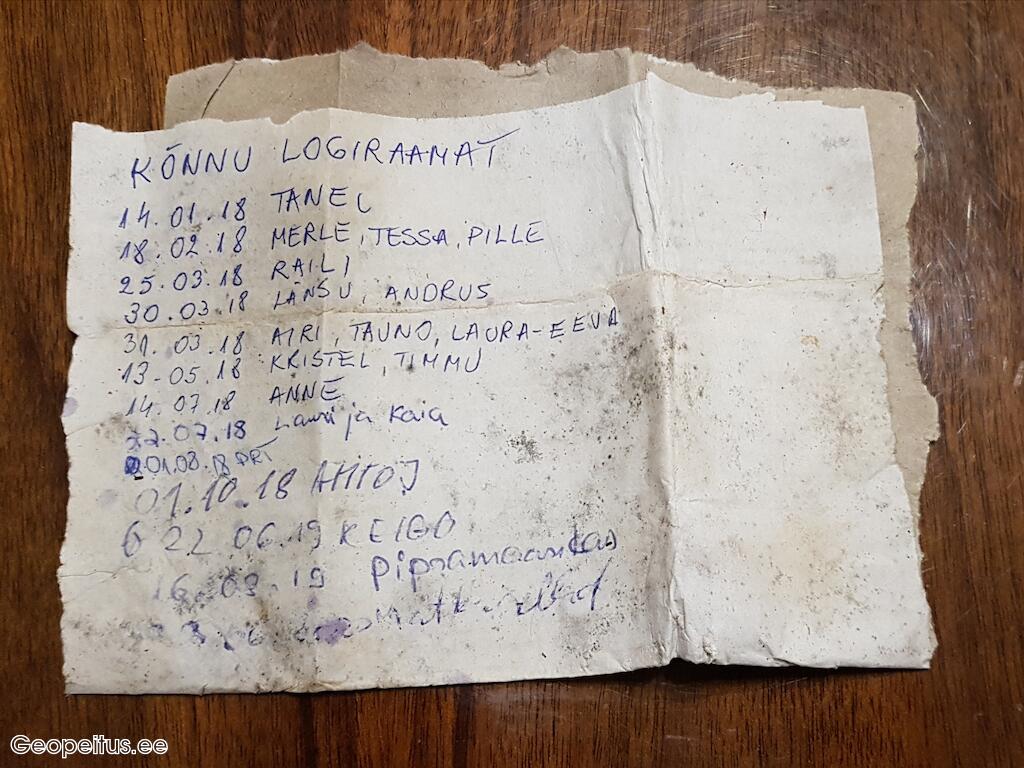 KÕNNU LOGIRAAMAT
14.01.18 TANEL
18.02.18 MERLE, TESSA, PILLE
25.03.18 RAILI
30.03.18 LANSU, ANDRUS
31.03.18 AIRI, TAUNO, LAURA-EEVA
13.05.18 KRISTEL, TIMMU
14.07.18 ANNE
22.07.18 Lauri ja Kaia
01.08.18 PRI
07.10.18 AHTOJ
22 06.19 KEIGO
16.09.19 pipramaardas
Geopeitus.ee